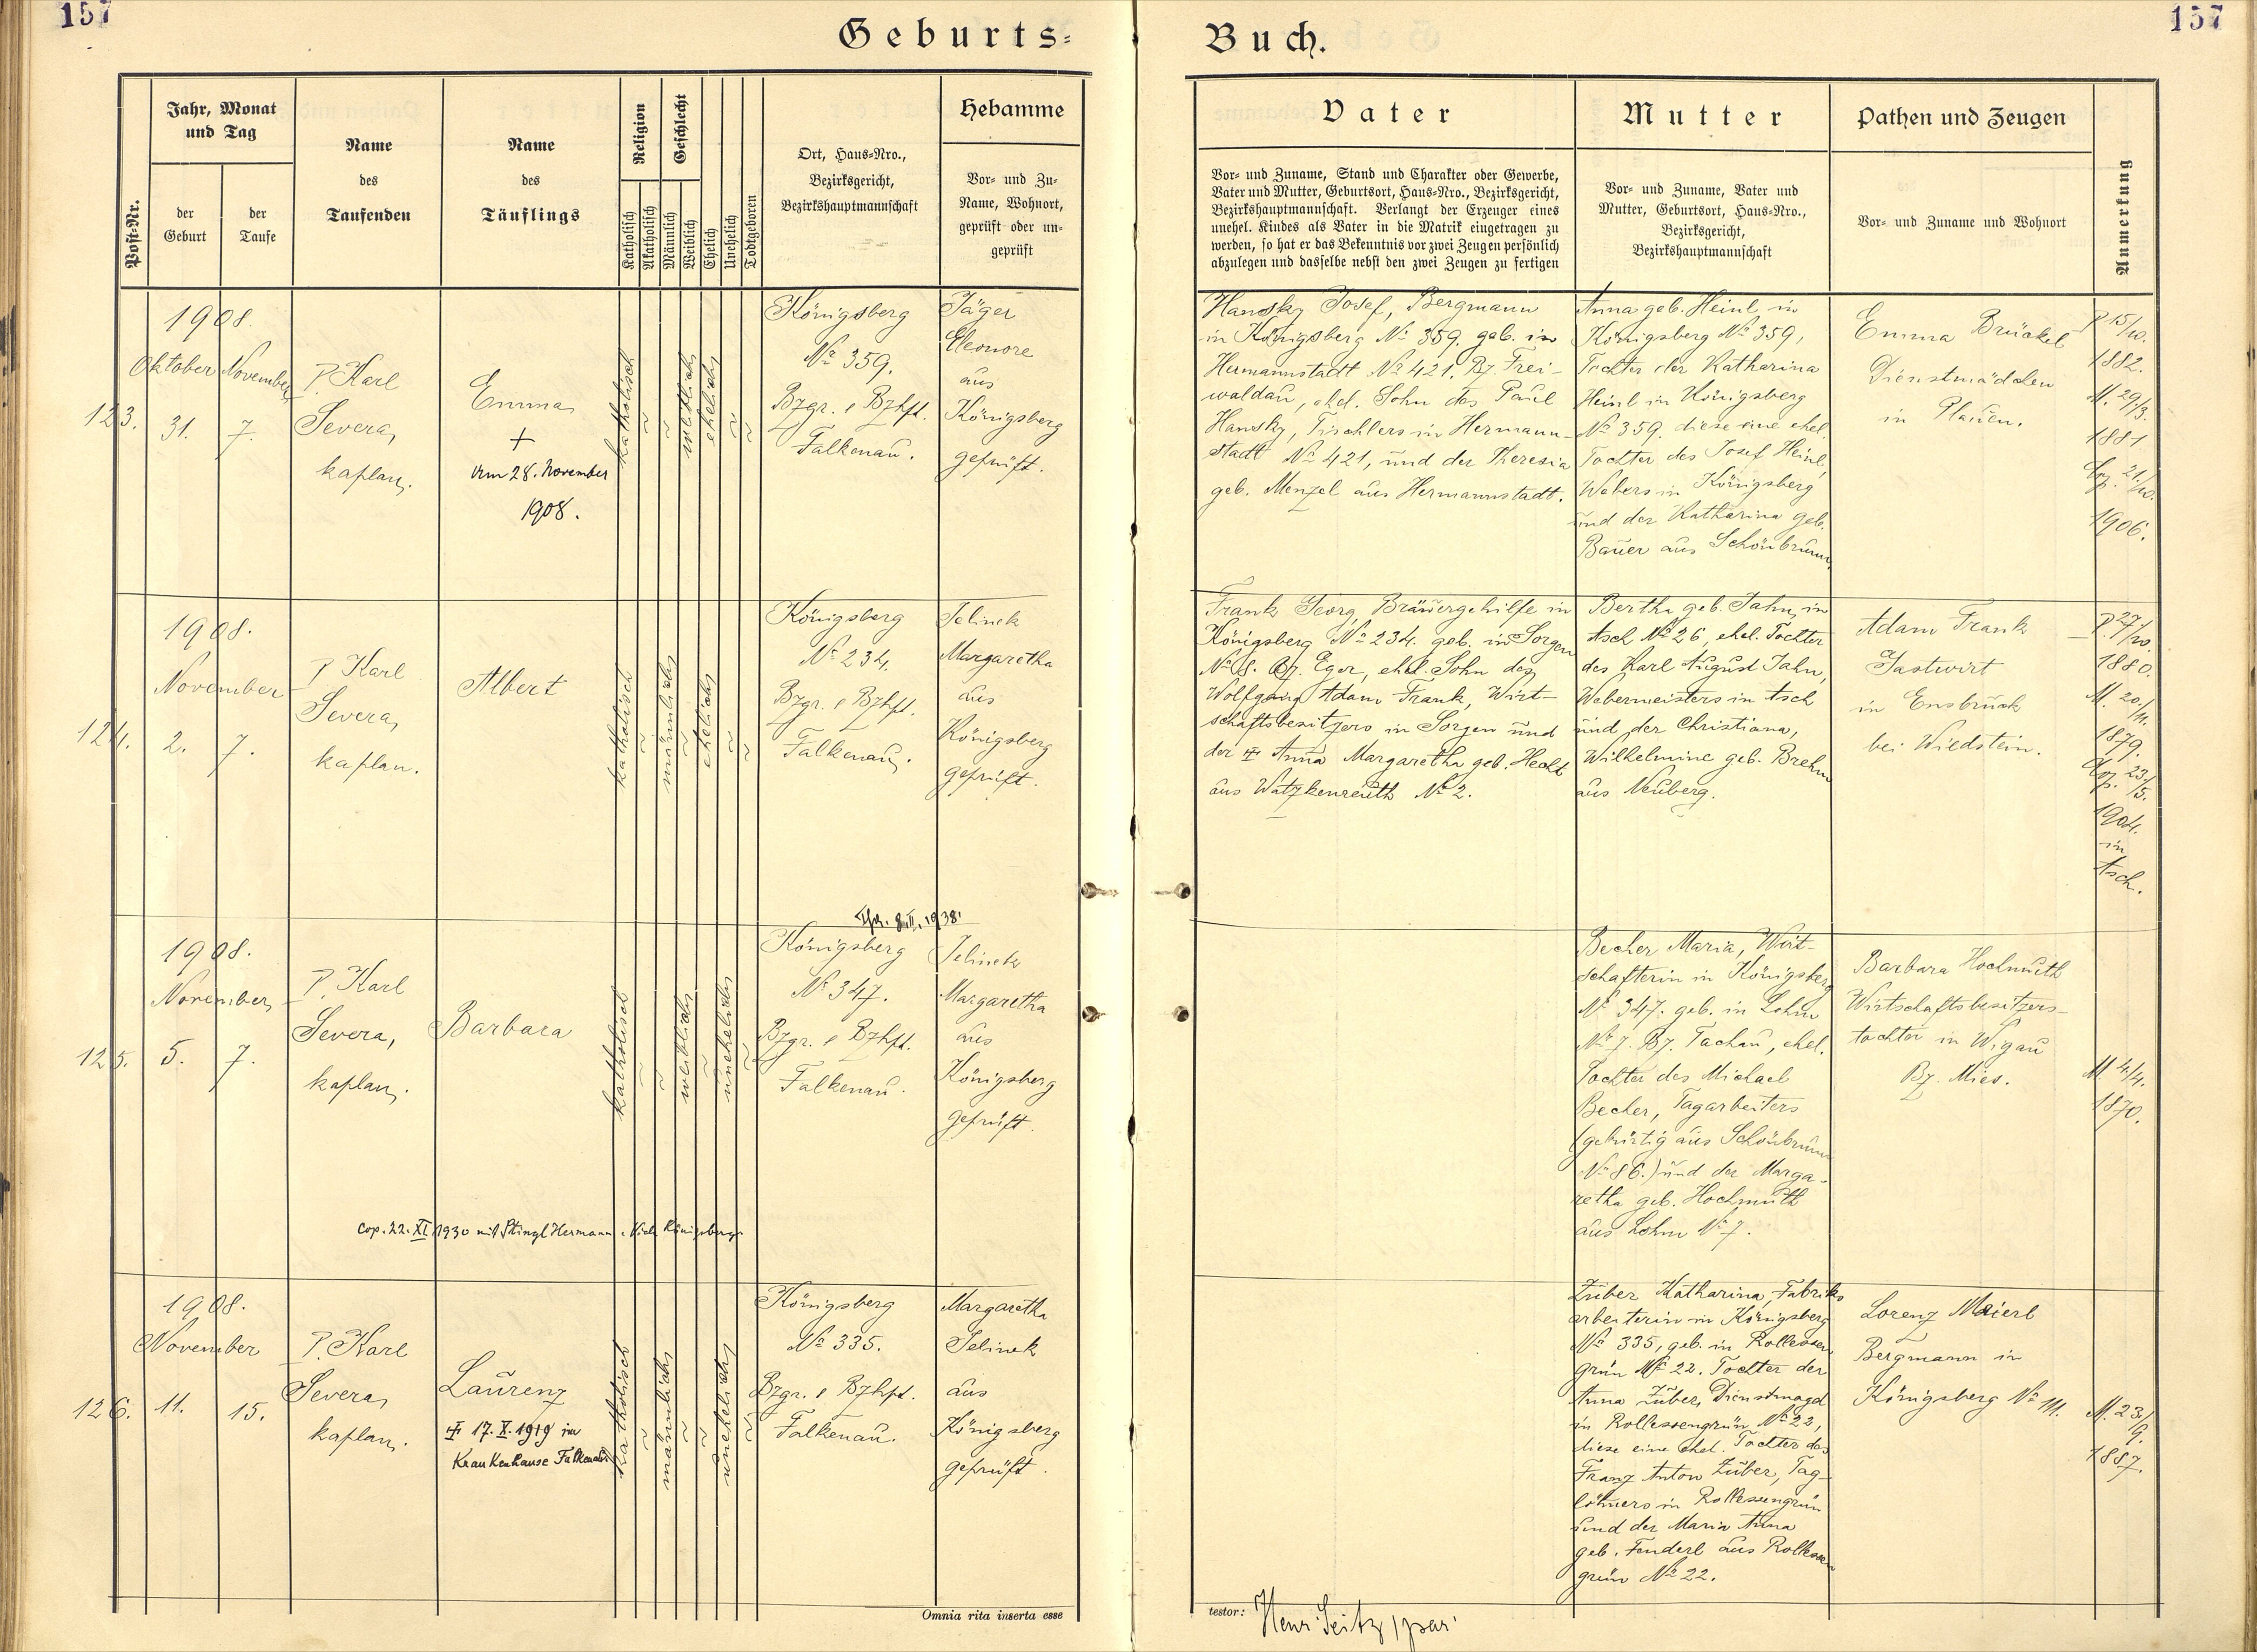 157
157
Geburts-
Buch.
Post-Nr.
Jahr, Monat
und Tag
der
Geburt
der
Taufe
Name
des
Taufenden
Name
des
Täuflings
Religion
Katholisch
Akatholisch
Geschlecht
Männlich
Weiblich
Ehelich
Unehelich
Todtgeboren
Ort, Haus-Nro.,
Bezirksgericht,
Bezirkshauptmannschaft
Hebamme
Vor- und Zu-
Name, Wohnort,
geprüft oder un-
geprüft
Vater
Vor- und Zuname, Stand und Charakter oder Gewerbe,
Vater und Mutter, Geburtsort, Haus-Nro., Bezirksgericht,
Bezirkshauptmannschaft. Verlangt der Erzeuger eines
unehel. Kindes als Vater in die Matrik eingetragen zu
werden, so hat er das Bekenntnis vor zwei Zeugen persönlich
abzulegen und dasselbe nebst den zwei Zeugen zu fertigen
Mutter
Vor- und Zuname, Vater und
Mutter, Geburtsort, Haus-Nro.,
Bezirksgericht,
Bezirkshauptmannschaft
Pathen und Zeugen
Vor- und Zuname und Wohnort
Anmerkung
123.
1908.
Oktober November
31. 7.
P. Karl
Severa,
kaplan.
Emma
+
am 28. November
1908.
katholisch
weiblich
ehelich
Königsberg
№ 359.
Bzgr. & Bzhpt.
Falkenau.
Jäger
Eleonore
aus
Königsberg
geprüft.
Hansky Josef, Bergmann
in Königsberg № 359. geb. in
Hermannstadt № 421. Bz. Frei-
waldau, ehel. Sohn des Paul
Hansky, Tischlers in Hermann-
stadt № 421, und der Theresia
geb. Menzel aus Hermannstadt.
Anna geb. Heinl in
Königsberg № 359,
Tochter der Katharina
Heinl in Königsberg
№ 359. diese eine ehel.
Tochter des Josef Heinl,
Webers in Königsberg
und der Katharina geb.
Bauer aus Schönbrunn.
Emma Brückel
Dienstmädchen
in Plauen.
P. 15/10.
1882.
M. 29/3.
1881
Cop. 21/10.
1906.
124.
1908.
November
2. 7.
P. Karl
Severa,
kaplan.
Albert
katholisch
männlich
ehelich
Königsberg
№ 234.
Bzgr. & Bzhpt.
Falkenau.
Jelinek
Margaretha
aus
Königsberg
geprüft.
Frank Georg, Bräuergehilfe in
Königsberg № 234. geb. in Sorgen
№ 8. Bz. Eger, ehel. Sohn des
Wolfgang Adam Frank, Wirt-
schaftsbesitzers in Sorgen und
der Anna Margaretha geb. Hecht
aus Watzkenreuth № 2.
Bertha geb. Jahn, in
Asch № 26, ehel. Tochter
des Karl August Jahn,
Webermeisters in Asch
und der Christiana,
Wilhelmine geb. Brehm
aus Neuberg.
Adam Frank
Gastwirt
in Ensbruck
bei Wildstein.
P. 27/10.
1880.
M. 20./11.
1879.
Cop. 23/5.
1904.
in
Asch.
125.
1908.
November
5. 7.
P. Karl
Severa,
kaplan.
Barbara
cop. 22. XI. 1930 mit Stingl Hermann
katholisch
weiblich
unehelich
1938.
Königsberg
№ 347.
Bzgr. & Bzhpt.
Falkenau.
Jelinek
Margaretha
aus
Königsberg
geprüft.
Becher Maria, Wirt-
schafterin in Königsberg
№ 347. geb. in Lohm
№ 7. Bz. Tachau, ehel.
Tochter des Michael
Becher, Tagarbeiters
(gebürtig aus Schönbrunn
№ 86.) und der Marga-
retha geb. Hochmuth
aus Lohm № 7.
Barbara Hochmuth
Wirtschaftsbesitzers-
tochter in Wigau
Bz. Mies.
M. 4/4.
1870.
126.
1908.
November
11. 15.
P. Karl
Severa,
kaplan.
Laurenz
17. X. 1919 im
Krankenhause Falkenau
katholisch
männlich
unehelich
Königsberg
№ 335.
Bzgr. & Bzhpt.
Falkenau.
Margaretha
Jelinek
aus
Königsberg
geprüft.
Züber Katharina, Fabriks
arbeiterin in Königsberg
№ 335, geb. in Rollessen
grün № 22. Tochter der
Anna Züber, Dienstmagd
in Rollessengrün № 22,
diese eine ehel. Tochter des
Franz Anton Züber, Tag-
löhners in Rollessengrün
und der Maria Anna
geb. Fenderl aus Rollessen
grün № 22.
Lorenz Maierl
Bergmann in
Königsberg № 111.
M. 23/9.
1887.
Omnia rita inserta esse
testor: